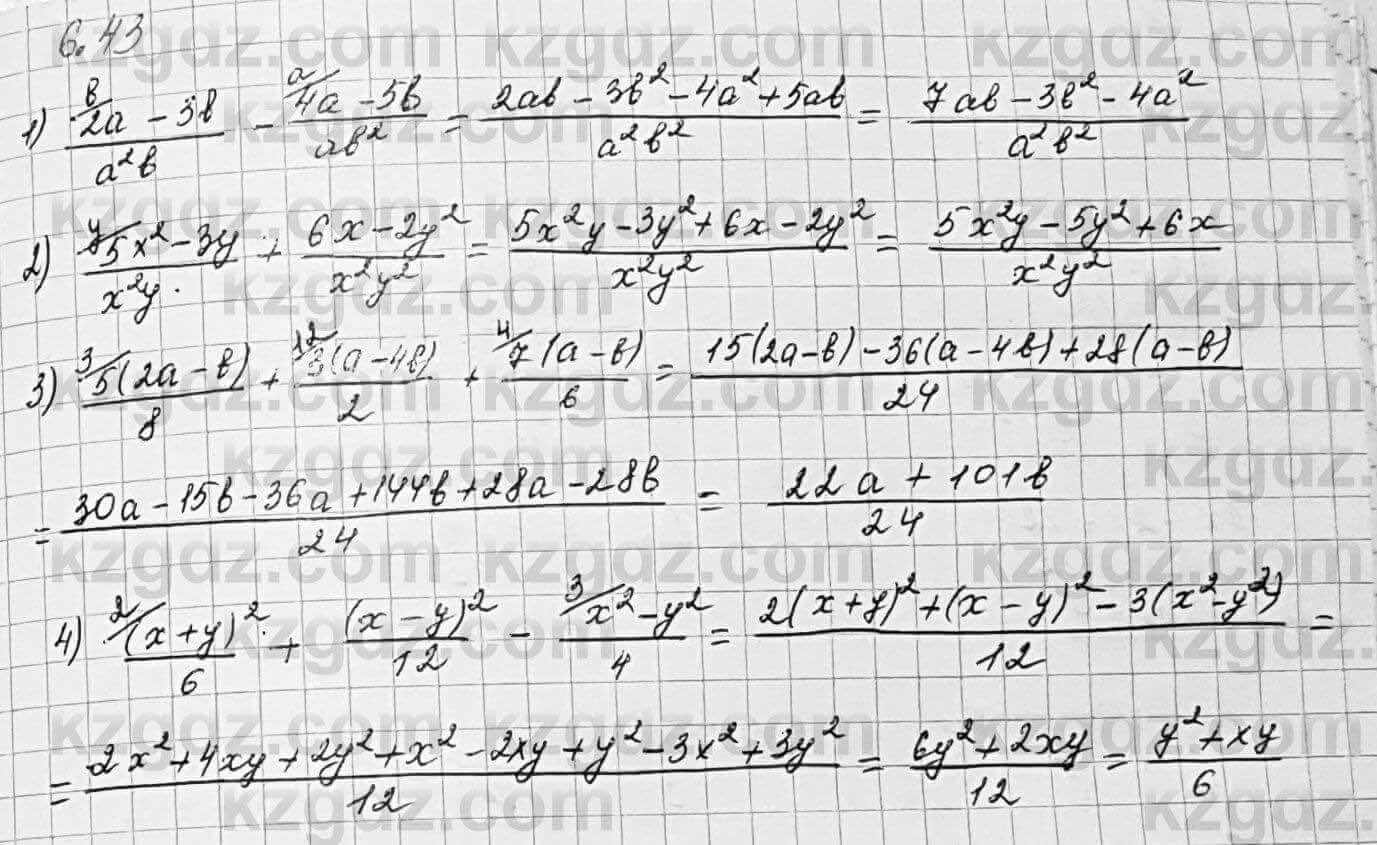 6.43
1) ᵇ/(2a - 3b)/(a²b) - ᵃ/(4a - 5b)/(ab²) = (2ab - 3b² - 4a² + 5ab)/(a²b²) = (7ab - 3b² - 4a²)/(a²b²)
2) ʸ/(5x² - 3y)/(x²y) + (6x - 2y²)/(x²y²) = (5x²y - 3y² + 6x - 2y²)/(x²y²) = (5x²y - 5y² + 6x)/(x²y²)
3) ³/5(2a - b)/8 + ¹²/3(a - 4b)/2 + ⁴/7(a - b)/6 = (15(2a - b) - 36(a - 4b) + 28(a - b))/24
= (30a - 15b - 36a + 144b + 28a - 28b)/24 = (22a + 101b)/24
4) ²/(x + y)²/6 + (x - y)²/12 - ³/(x² - y²)/4 = (2(x + y)² + (x - y)² - 3(x² - y²))/12 =
= (2x² + 4xy + 2y² + x² - 2xy + y² - 3x² + 3y²)/12 = (6y² + 2xy)/12 = (y² + xy)/6
kzgdz.com